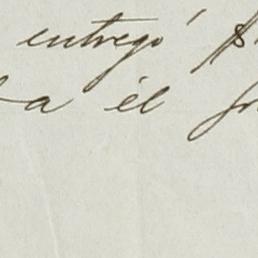 entregó $
a él